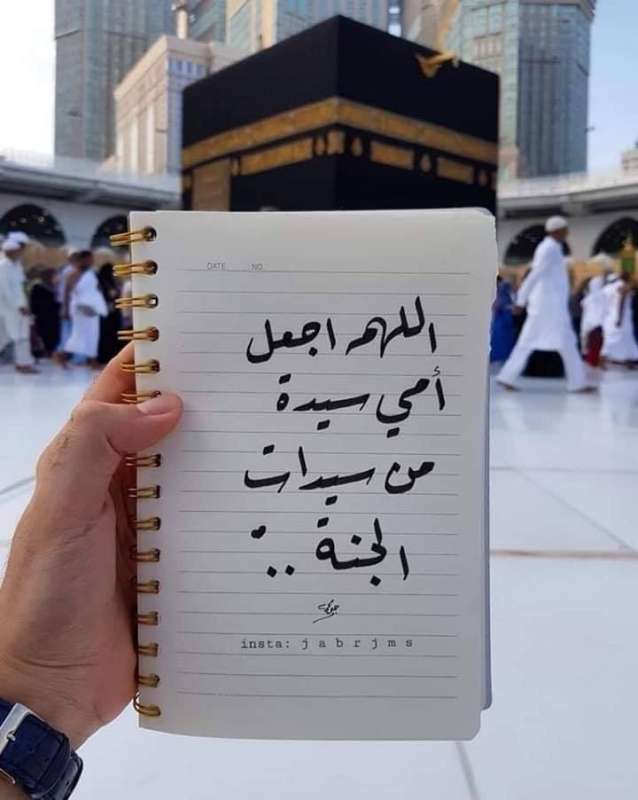 DATE NO.
اللهم اجعل
أمي سيدة
من سيدات
الجنة ..
insta: j a b r j m s